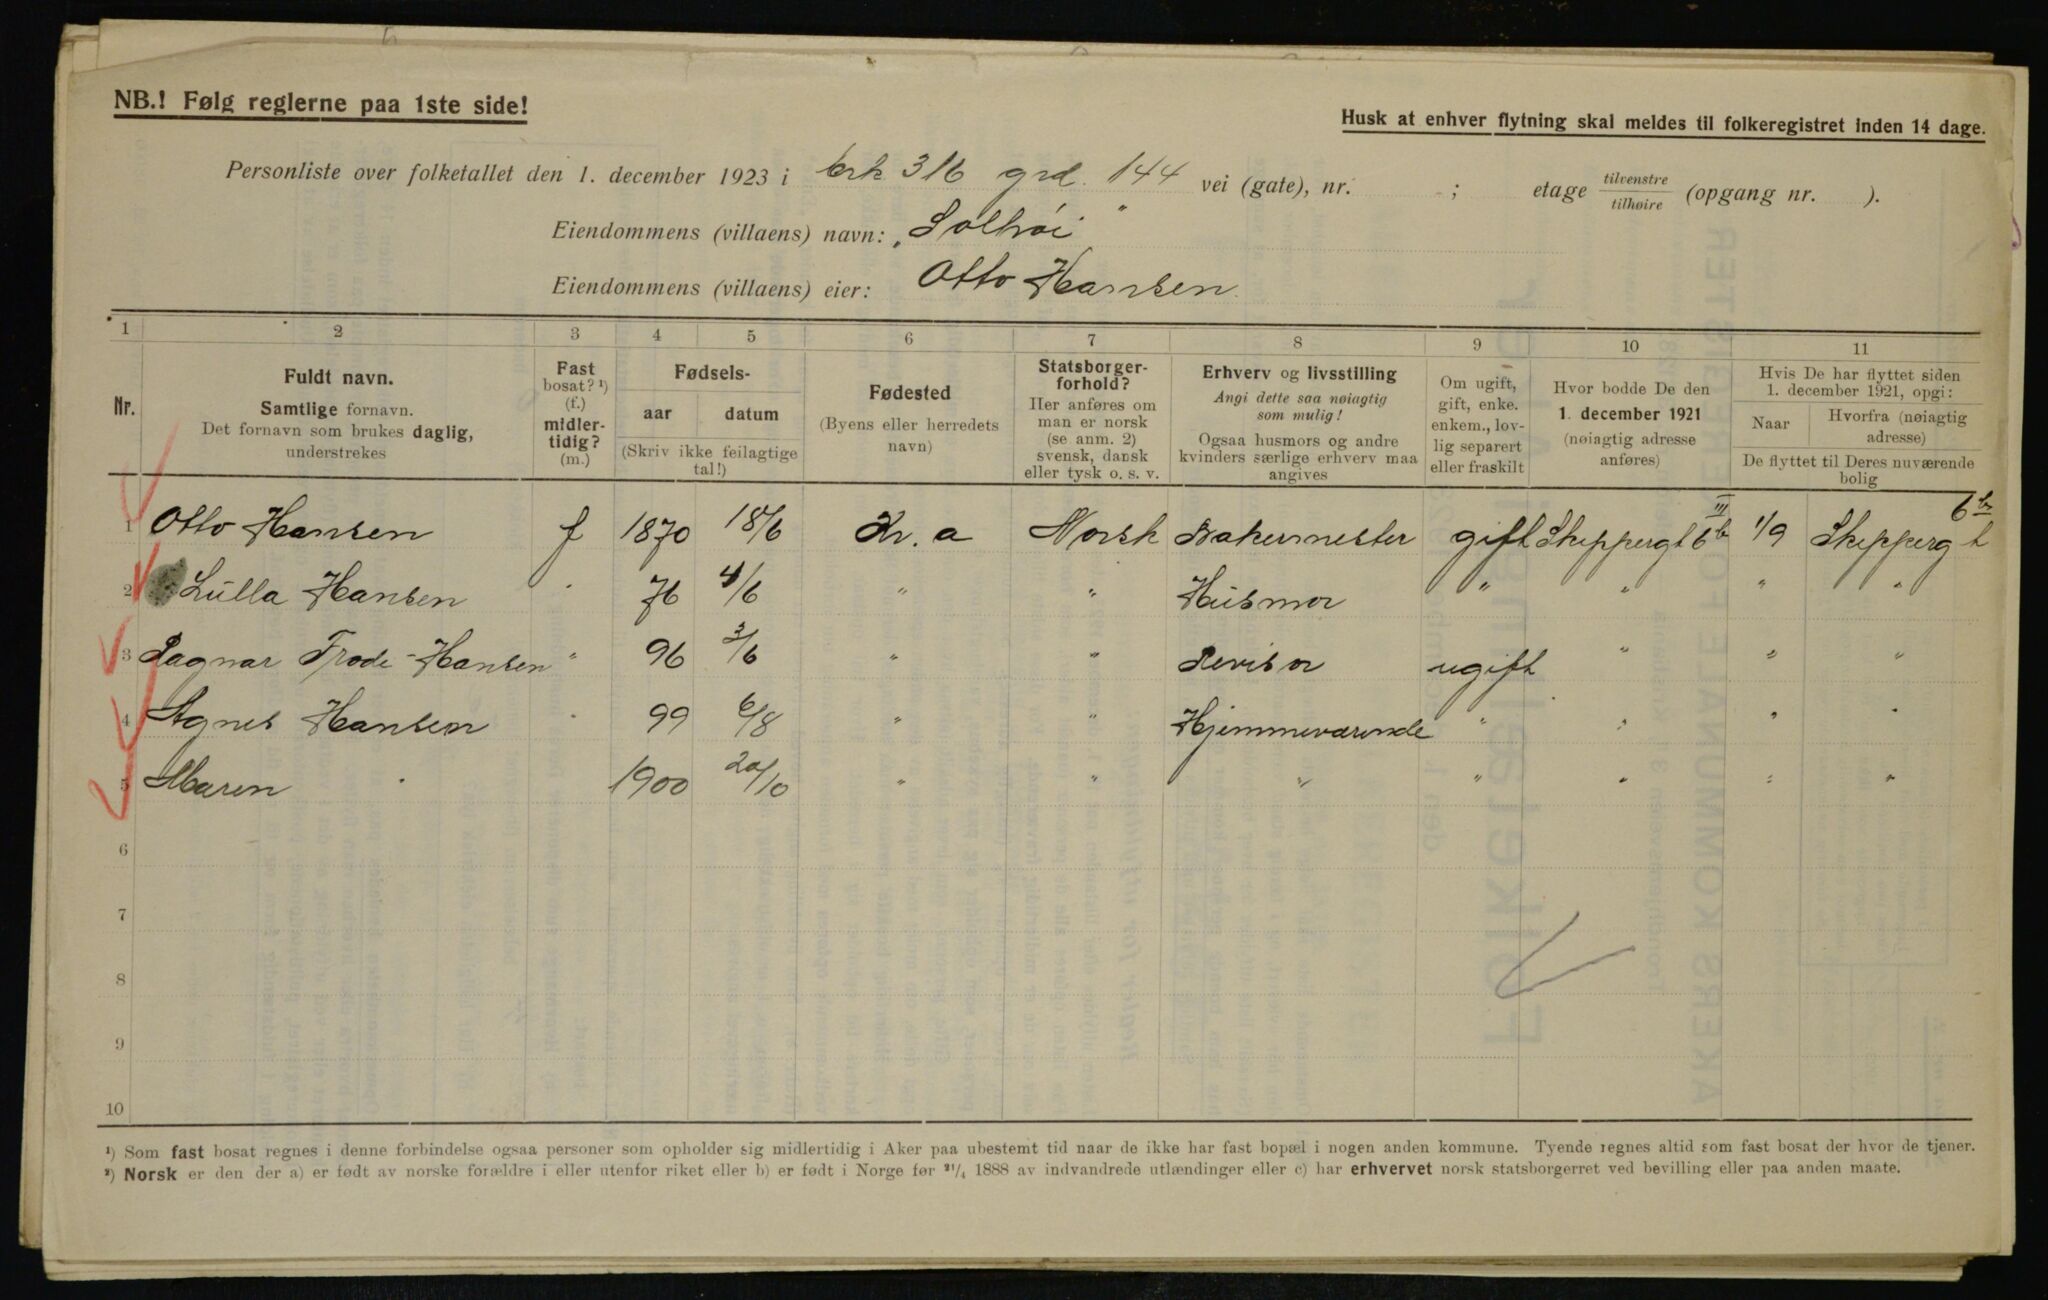 NB.! Følg reglerne paa 1ste side!
Husk at enhver flytning skal meldes til folkeregistret inden 14 dage.
Personliste over folketallet den 1. december 1923 i brk 316 grd. 144 vei (gate), nr. ; etage tilvenstre tilhøire (opgang nr. ).
Eiendommens (villaens) navn: „Solhøi"
Eiendommens (villaens) eier: Otto Hansen.
1 2 3 4 5 6 7 8 9 10 11
Nr.
Fuldt navn.
Samtlige fornavn.
Det fornavn som brukes daglig,
understrekes
Fast
bosat? ¹)
(f.)
midler-
tidig?
(m.)
Fødsels-
aar datum
(Skriv ikke feilagtige
tal!)
Fødested
(Byens eller herredets
navn)
Statsborger-
forhold?
Her anføres om
man er norsk
(se anm. 2)
svensk, dansk
eller tysk o. s. v.
Erhverv og livsstilling
Angi dette saa nøiagtig
som mulig!
Ogsaa husmors og andre
kvinders særlige erhverv maa
angives
Om ugift,
gift, enke.
enkem., lov-
lig separert
eller fraskilt
Hvor bodde De den
1. december 1921
(nøiagtig adresse
anføres)
Hvis De har flyttet siden
1. december 1921, opgi:
Naar
Hvorfra (nøiagtig
adresse)
De flyttet til Deres nuværende
bolig
1 Otto Hansen f 1870 18/6 Kr. a Norsk Bakermester gift Skippergt 6b III 1/9 Skipperg t 6b
2 Lulla Hansen " 76 4/6 " " Husmor " " " "
3 Ragnar Frode-Hansen " 96 3/6 " " Revisor ugift " " "
4 Agnes Hansen " 99 6/8 " " Hjemmeværende " " " "
5 Maren " 1900 20/10 " " " " " " "
6
7
8
9
10
¹) Som fast bosat regnes i denne forbindelse ogsaa personer som opholder sig midlertidig i Aker paa ubestemt tid naar de ikke har fast bopæl i nogen anden kommune. Tyende regnes altid som fast bosat der hvor de tjener.
²) Norsk er den der a) er født av norske forældre i eller utenfor riket eller b) er født i Norge før ²¹/₄ 1888 av indvandrede utlændinger eller c) har erhvervet norsk statsborgerret ved bevilling eller paa anden maate.